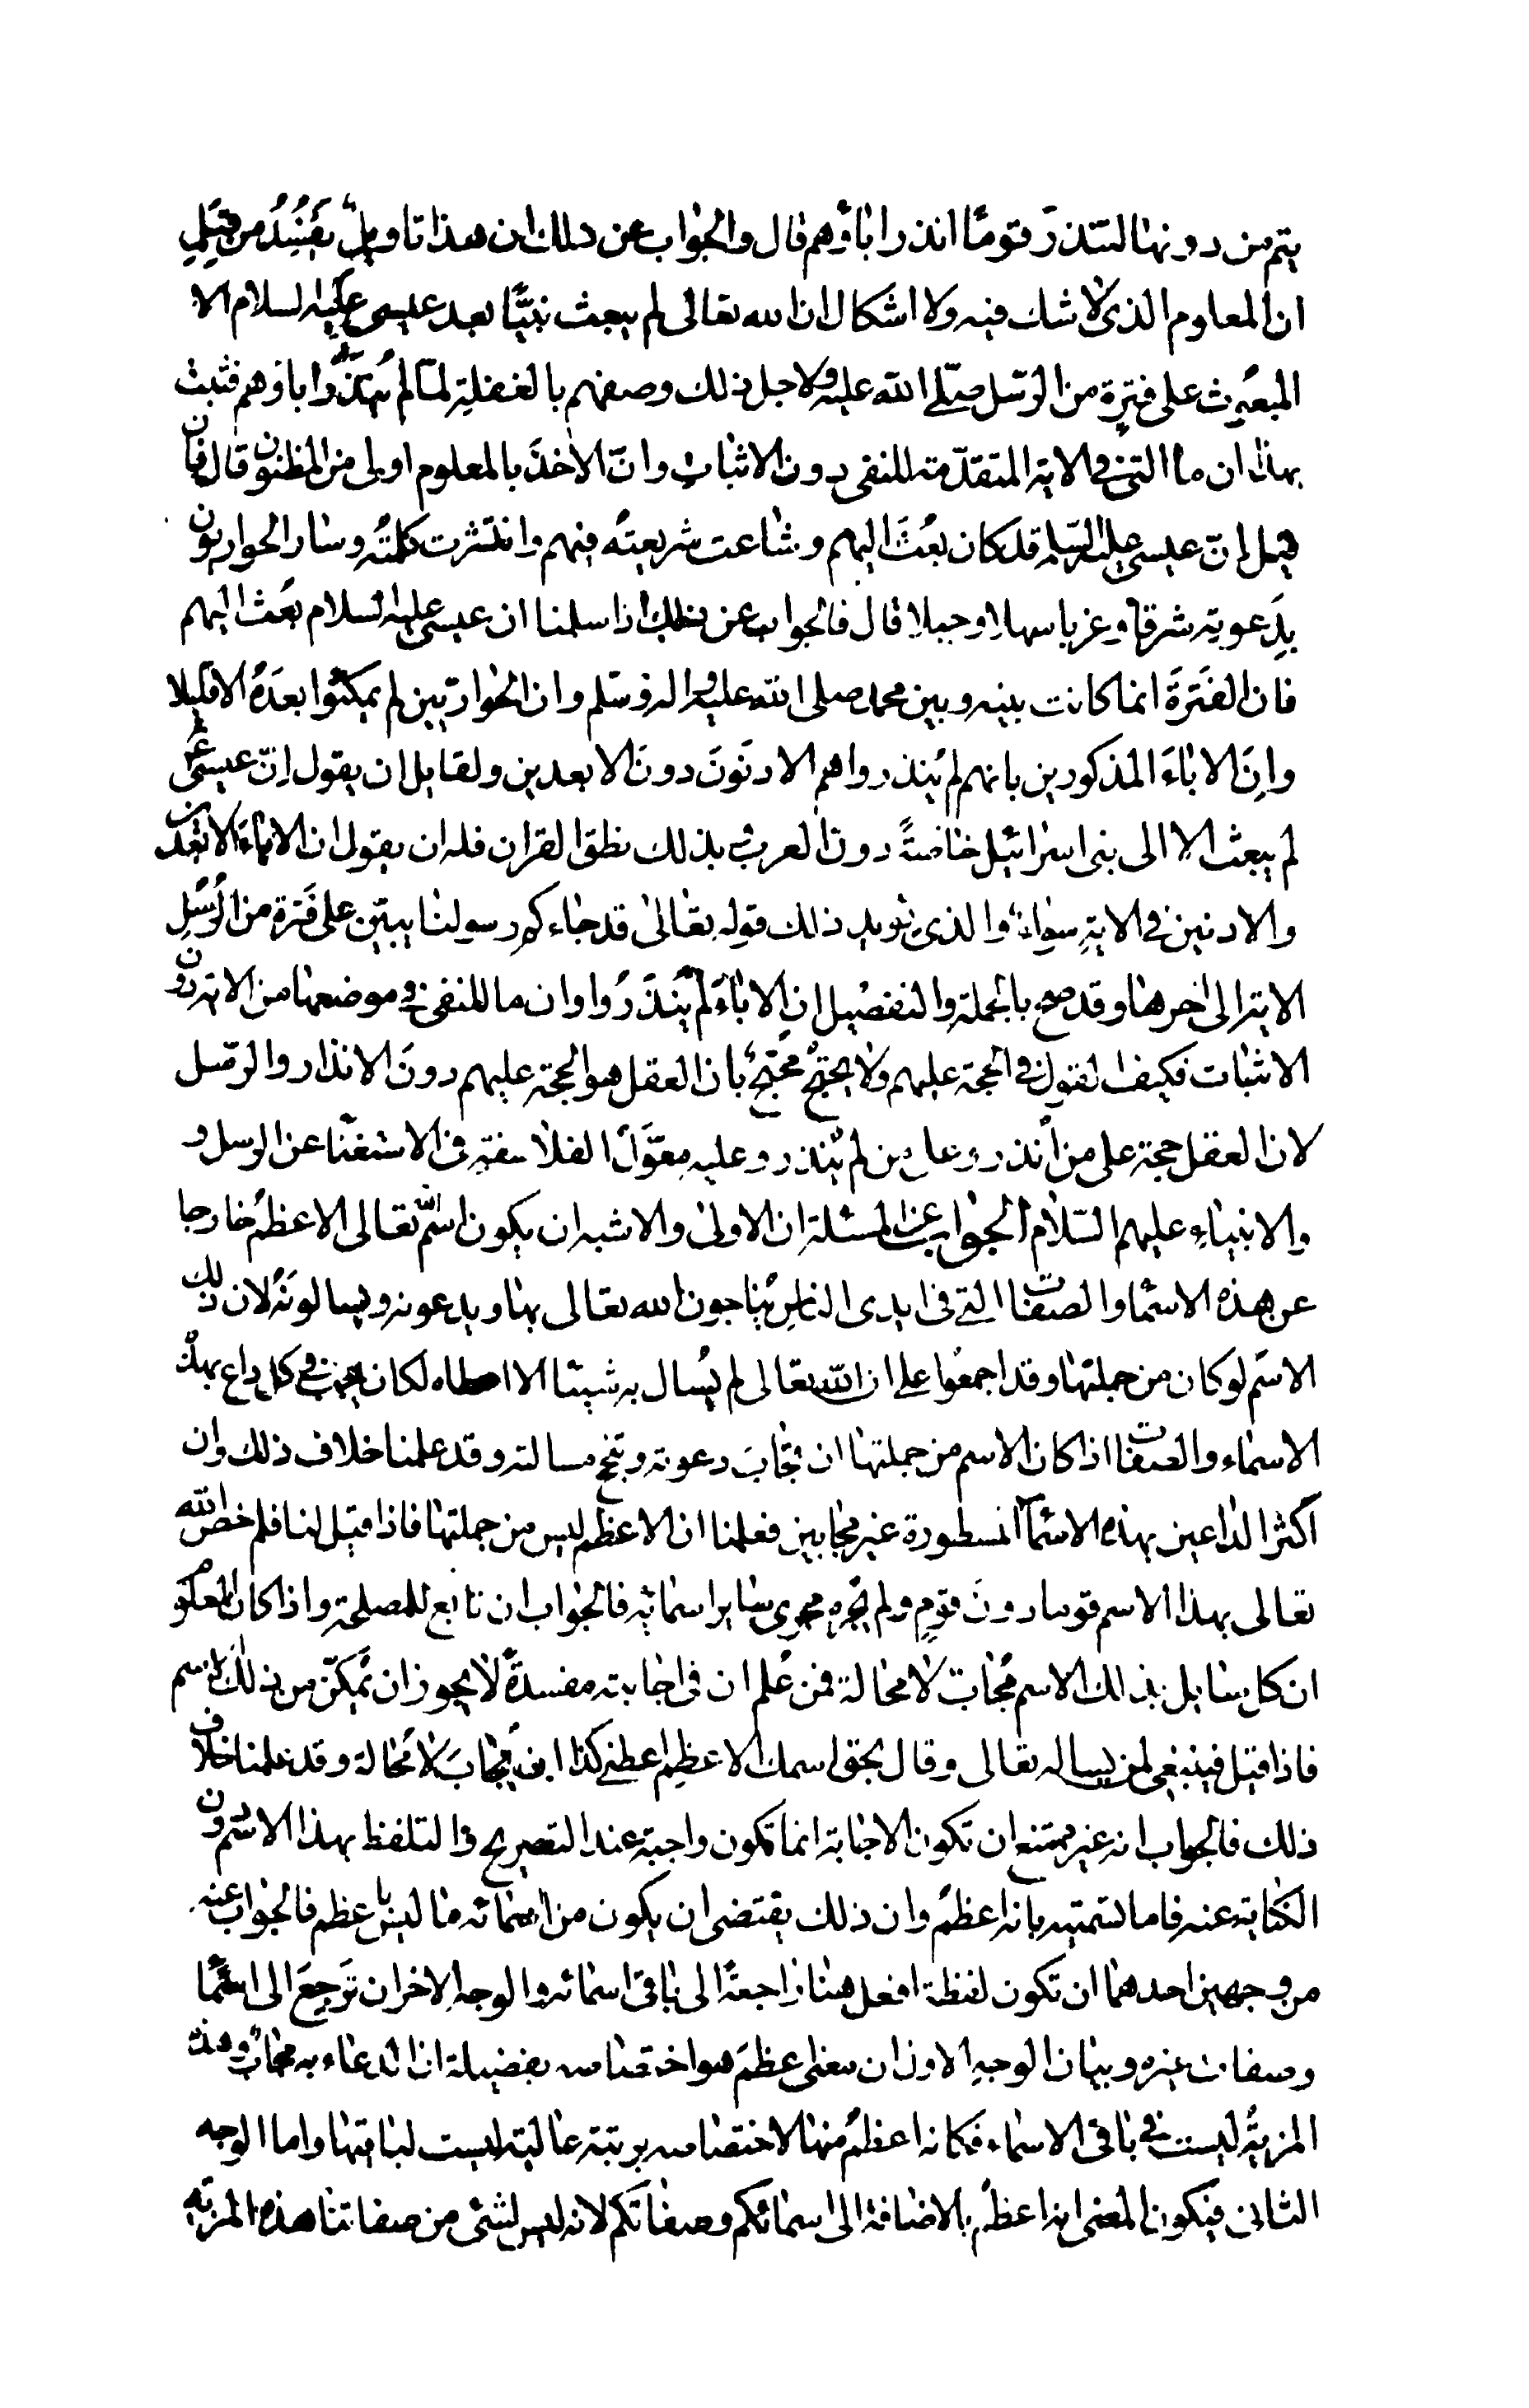 يتم من دونها لتنذر قومًا انذر اباؤهم قال والجواب عن ذلك ان هذا تاويلٌ يَفسُدُ من قِبَلِ
ان المعلوم الذي لا شك فيه ولا اشكال ان الله تعالى لم يبعث نبيًّا بعد عيسى عليه السلام الا
المبعوث على فترة من الرّسل صلّى الله عليه ولاجل ذلك وصفهم بالغفلة لمّا لم يُنذَرُوا اباؤهم فثبت
بهذا ان ما التي في الاية المتقدّمة للنفي دون الاثبات وانّ الاخذَ بالمعلوم اولى من المظنون قال فان
قيل انّ عيسى عليه السّلم قد كان بُعثَ اليهم وشاعت شريعتُه فيهم وانتشرت كلمتُه وسار الحواريون
بدَعوته شرقا وغربا سهلا وجبلا قال فالجواب عن ذلك اذا سلمنا ان عيسى عليه السلام بُعث اليهم
فان الفَترَةَ انما كانت بينه وبين محمد صلى الله عليه واله وسلم وان الحواريّين لم يمكثوا بعدَهُ الا قليلا
وانَ الاباءَ المذكورين بانهم لم يُنذروا هم الادنَونَ دونَ الابعدين ولقايل ان يقول انّ عيسى ع
لم يبعث الا الى بنى اسرائيل خاصةً دون العرب بذلك نطق القران فله ان يقول ان الاباءَ الابعدين
والادنين في الايةِ سواءٌ والذى يؤيد ذلك قوله تعالى قد جاءكم رسولنا يبيّن على فَترة من الرُسُلِ
الاية الى اخرها وقد صح بالجملة والتفصيل ان الاباءَ لم يُنذَرُوا وان ما للنفي في موضعها من الاية دون
الاثبات فكيف القول في الحجة عليهم ولا يحتجّ محتجٌ بان العقل هو الحجة عليهم دونَ الانذار والرسل
لان العقل حجة على من اُنذر وعلى من لم يُنذر وعليه معوَّلُ الفلاسفة في الاستغنا عن الرسل و
والانبياءِ عليهم السّلام الجواب عن المسئلة ان الاولى والاشبه ان يكون اسم الله تعالى الاعظمُ خارجا
عن هذه الاسما والصفات التي في ايدى الناس يُناجون الله تعالى بها ويدعونه ويسالونَهُ لان ذلك
الاسم لو كان من جملتها وقد اجمعُوا على ان الله تعالى لم يُسال به شيئا الا اعطاه لكان يجب في كل داع بهذه
الاسماء والصفات اذا كان الاسم من جملتها ان تجابَ دعوته وتنجح مسالته وقد علمنا خلاف ذلك وان
اكثر الداعين بهذه الاسمآ المسطورة غير مجابين فعلمنا ان الاعظم ليس من جملتها فاذا قيل لنا فلم خص الله
تعالى بهذا الاسم قوما دونَ قومٍ ولم يُجره مجرى ساير اسمائه فالجواب ان تابع للمصلحة واذا كان المعلوم
ان كل سايل بذلك الاسم مُجابٌ لا محالة فمن عُلم ان في اجابته مفسدةً لا يجوز ان يُمكّن من ذلك الاسم
فاذا قيل فينبغي لمن يساله تعالى وقال بحق اسمك الاعظم اعطني كذا ان يُجابَ لا محالة وقد علمنا خلاف
ذلك فالجواب انه غير ممتنع ان تكون الاجابة انما تكون واجبة عند التصريح والتلفظ بهذا الاسم دون
الكناية عنه فاما تسميته بانه اعظمُ وان ذلك يقتضى ان يكون من اسمائه ما ليس باعظم فالجواب عنه
من وجهين احدهما ان تكون لفظة افعل هنا راجعةً الى باقى اسمائه والوجه الاخر ان تَرجِعَ الى اسما
وصفات غيره وبيان الوجهِ الاول ان معنى اعظمَ هو اختصاصه بفضيلة ان الدعاء به مجابٌ وهذه
المزيةُ ليست في باقى الاسماء فكانه اعظمُ منها لاختصاصه برتبة عالية ليست لباقيها واما الوجه
الثانى فيكون المعنى انه اعظمُ بالاضافة الى اسمائكم وصفاتكم لانه ليس لشئ من صفاتنا هذه المزيّه